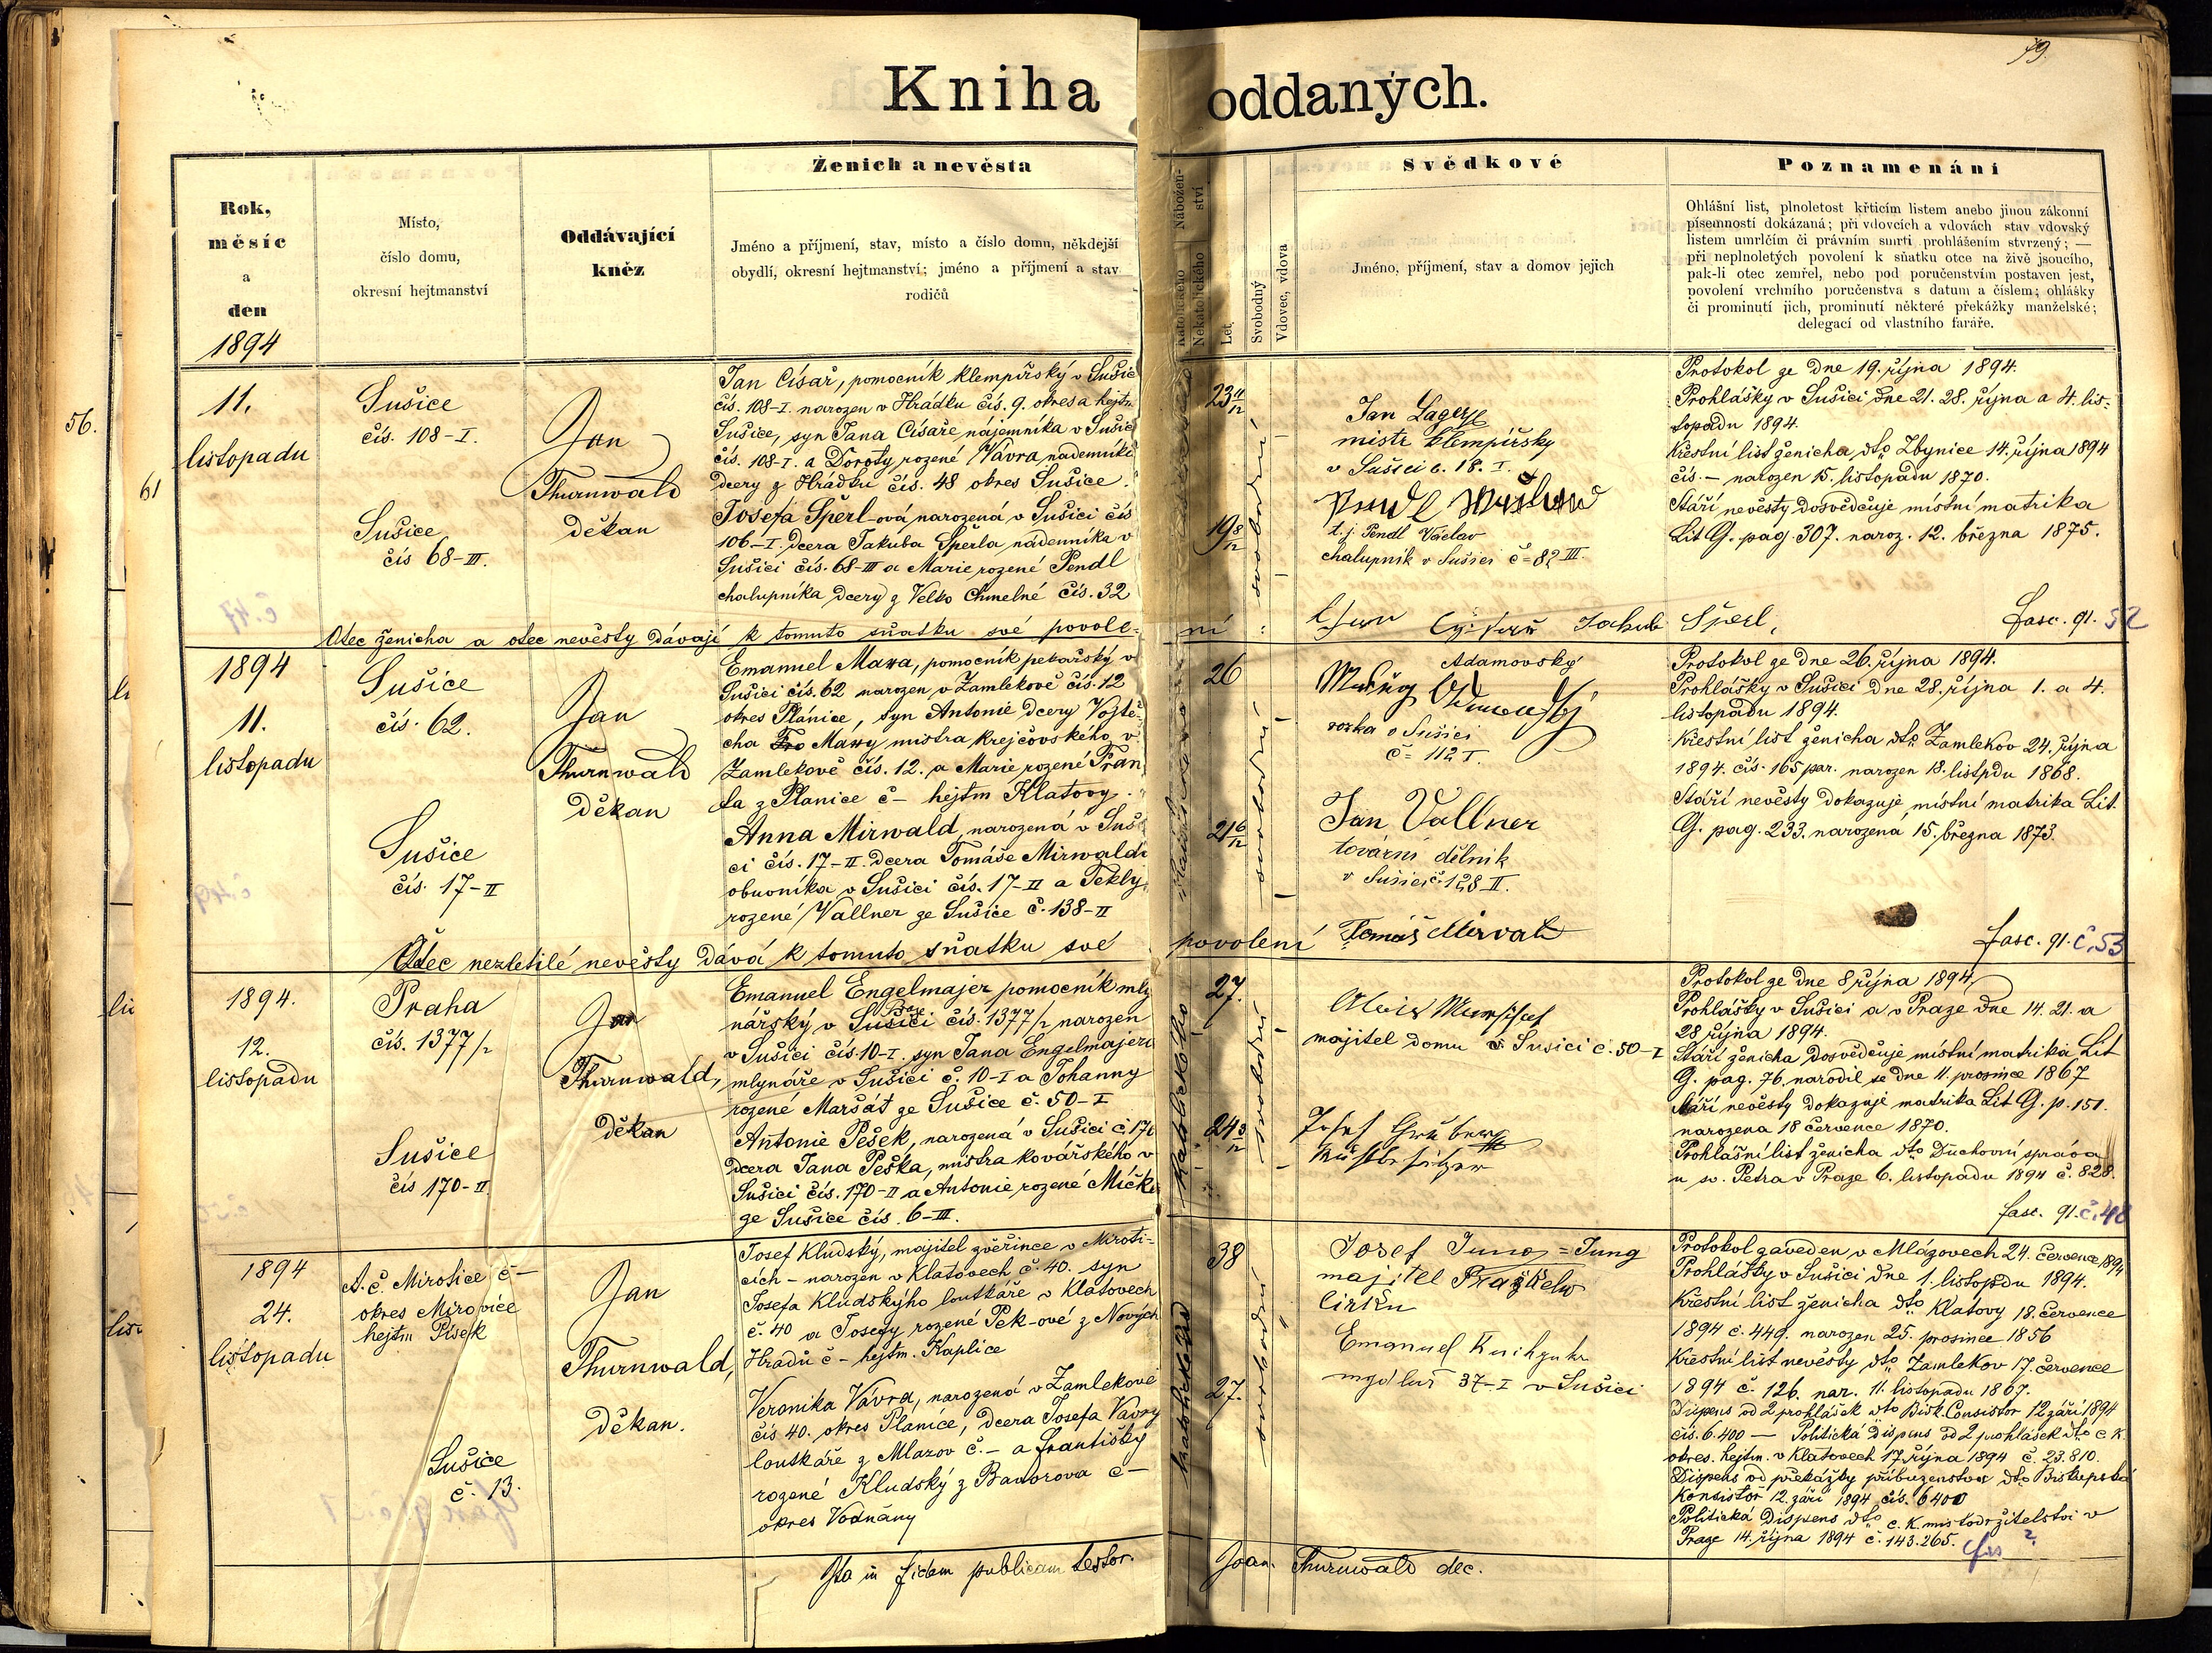 79.
Kniha oddaných.
Rok,
měsíc
a
den
1894
Místo,
číslo domu,
okresní hejtmanství
Oddávající
kněz
Ženich a nevěsta
Jméno a příjmení, stav, místo a číslo domu, někdejší
obydlí, okresní hejtmanství; jméno a příjmení a stav
rodičů
Nábožen-
ství
Katolického
Nekatolického
Let
Svobodný
Vdovec, vdova
Svědkové
Jméno, příjmení, stav a domov jejich
Poznamenání
Ohlášní list, plnoletost křticím listem anebo jinou zákonní
písemností dokázaná; při vdovcích a vdovách stav vdovský
listem umrlčím či právním smrti prohlášením stvrzený; —
při neplnoletých povolení k sňatku otce na živě jsoucího,
pak-li otec zemřel, nebo pod poručenstvím postaven jest,
povolení vrchního poručenstva s datum a číslem; ohlášky
či prominutí jich, prominutí některé překážky manželské;
delegací od vlastního faráře.
56.
61
11.
listopadu
Sušice
čís. 108-I.
Sušice
čís 68-III.
Jan
Thurnwald
děkan
Jan Císař, pomocník klempířský v Sušic
čís. 108-I. narozen v Hrádku čís. 9. okres a hejtm
Sušice, syn Jana Císaře nájemníka v Sušic
čís. 108-I. a Doroty rozené Vávra nademníka
dcery z Hrádku čís. 48 okres Sušice.
Josefa Šperl-ová narozená v Sušici čís
106-I. dcera Jakuba Šperla nádenníka v
Sušici čís. 68-III a Marie rozené Pendl
chalupníka dcery z Velko Chmelné čís. 32
Otec ženicha a otec nevěsty dávají k tomuto sňatku své povole-
ní:
23 11/12
19 8/12
svobodní
Jan
mistr klempířsky
v Sušici č. 18. I.
t. j. Pendl Václav
chalupník v Sušici č=82 III.
Jakub Šperl,
Protokol ze dne 19. října 1894.
Prohlášky v Sušici dne 21. 28. října a 4. lis-
topadu 1894.
Křestní list ženicha dto Zbynice 14. října 1894
čís. — narozen 15. listopadu 1870.
Stáří nevěsty dosvědčuje místní matrika
Lit G. pag. 307. naroz. 12. března 1875.
fasc. 91. 52
1894
11.
listopadu
Sušice
čís. 62.
Sušice
čís. 17-II
Jan
Thurnwald
Děkan
Emanuel Mawa, pomocník pekařský v
Sušici čís. 62 narozen v Zamlekově čís. 12
okres Plánice, syn Antonie dcery Vojtě-
cha Mawy mistra krejčovského v
Zamlekově čís. 12. a Marie rozené Fran
ta z Planice č — hejtm Klatovy.
Anna Mirwald, narozená v Suš
ci čís. 17-II. dcera Tomáše Mirwalda
obuvníka v Sušici čís. 17-II a Tekly
rozené Vallner ze Sušice č. 138-II
Otec nezletilé nevěsty dává k tomuto sňatku své
povolení Tomáš Mirvalt
26
21 6/12
svobodní
Adamovský
v Sušici
č= 112 I.
Jan Vallner
tovární dělník
v Sušici č. 128 II.
Protokol ze dne 26. října 1894.
Prohlášky v Sušici dne 28. října 1. a 4.
listopadu 1894.
Křestní list ženicha dto Zamlekov 24. října
1894. čís. 165 par. narozen 18. listpdu 1868.
Stáří nevěsty dokazuje místní matrika Lit.
G. pag. 233. narozená 15. března 1873.
fasc. 91. č. 53
1894.
12.
listopadu
Praha
čís. 1377/2
Sušice
čís 170-II
Jan
Thurnwald,
Děkan
Emanuel Engelmajer pomocník mly
nářský v Sušici čís. 1377/2 narozen
v Sušici čís. 10-I. syn Jana Engelmajera
mlynáře v Sušici č. 10-I a Johanny
rozené Maršát ze Sušice č. 50-I
Antonie Pešek, narozená v Sušici č. 170
dcera Jana Peška, mistra kovářského v
Sušici čís. 170-II a Antonie rozené Míčka
ze Sušice čís. 6-III.
katolického
27.
24 3/12
svobodní
majitel domu v Sušici č. 50-I
Josef
Protokol ze dne 8 října 1894,
Prohlášky v Sušici a v Praze dne 14. 21. a
28 října 1894.
Stáří ženicha dosvědčuje místní matrika Lit
G. pag. 76. narodil se dne 11. prosince 1867
Stáří nevěsty dokazuje matrika Lit G. p. 151.
narozena 18 července 1870.
Prohlášní list ženicha dto Duchovní správa
u sv. Petra v Praze 6. listopadu 1894 č. 828.
fasc. 91. č. 48
1894
24.
listopadu
A. č. Mirotice č —
okres Mirovice
hejtm Písek
Sušice
č. 13.
Jan
Thurnwald,
Děkan.
Josef Kludský, majitel zvěřince v Miroti-
cích — narozen v Klatovech č. 40. syn
Josefa Kludskýho loutkáře v Klatovech
č. 40 a Josefy rozené Pek-ové z Nových
Hradů č — hejtm. Kaplice
Veronika Vávra, narozená v Zamlekově
čís 40. okres Planice, dcera Josefa Vavry
loutkáře z Mlazov č. — a Františky
rozené Kludský z Bavorova č —
okres Vodňany
38
27.
svobodní
Josef Jung = Jung
majitel
cirku
Emanuel
37-I v Sušici
Protokol zaveden v Mlázovech 24. července 1894
Prohlášky v Sušici dne 1. listopdu 1894.
Křestní list ženicha dto Klatovy 18. července
1894 č. 449. narozen 25. prosince 1856
Křestní list nevěsty dto Zamlekov 17. července
1894 č. 126. nar. 11. listopadu 1867.
Dispens od 2 prohlášek dto Bisk. Consistor 12 září 1894
čís. 6.400 — Politická dispens od 2 prohlášek dto c. k.
okres. hejtm. v Klatovech 17. října 1894 č. 23.810.
Dispens od překážky příbuzenstva dto Biskupská
Konsistoř 12. září 1894 čís. 6400
Politická Dispens dto c. k. místodržitelství v
Praze 14. října 1894 č. 143.265.
Ita in fidem publicam testor. Joan. Thurnwald dec.